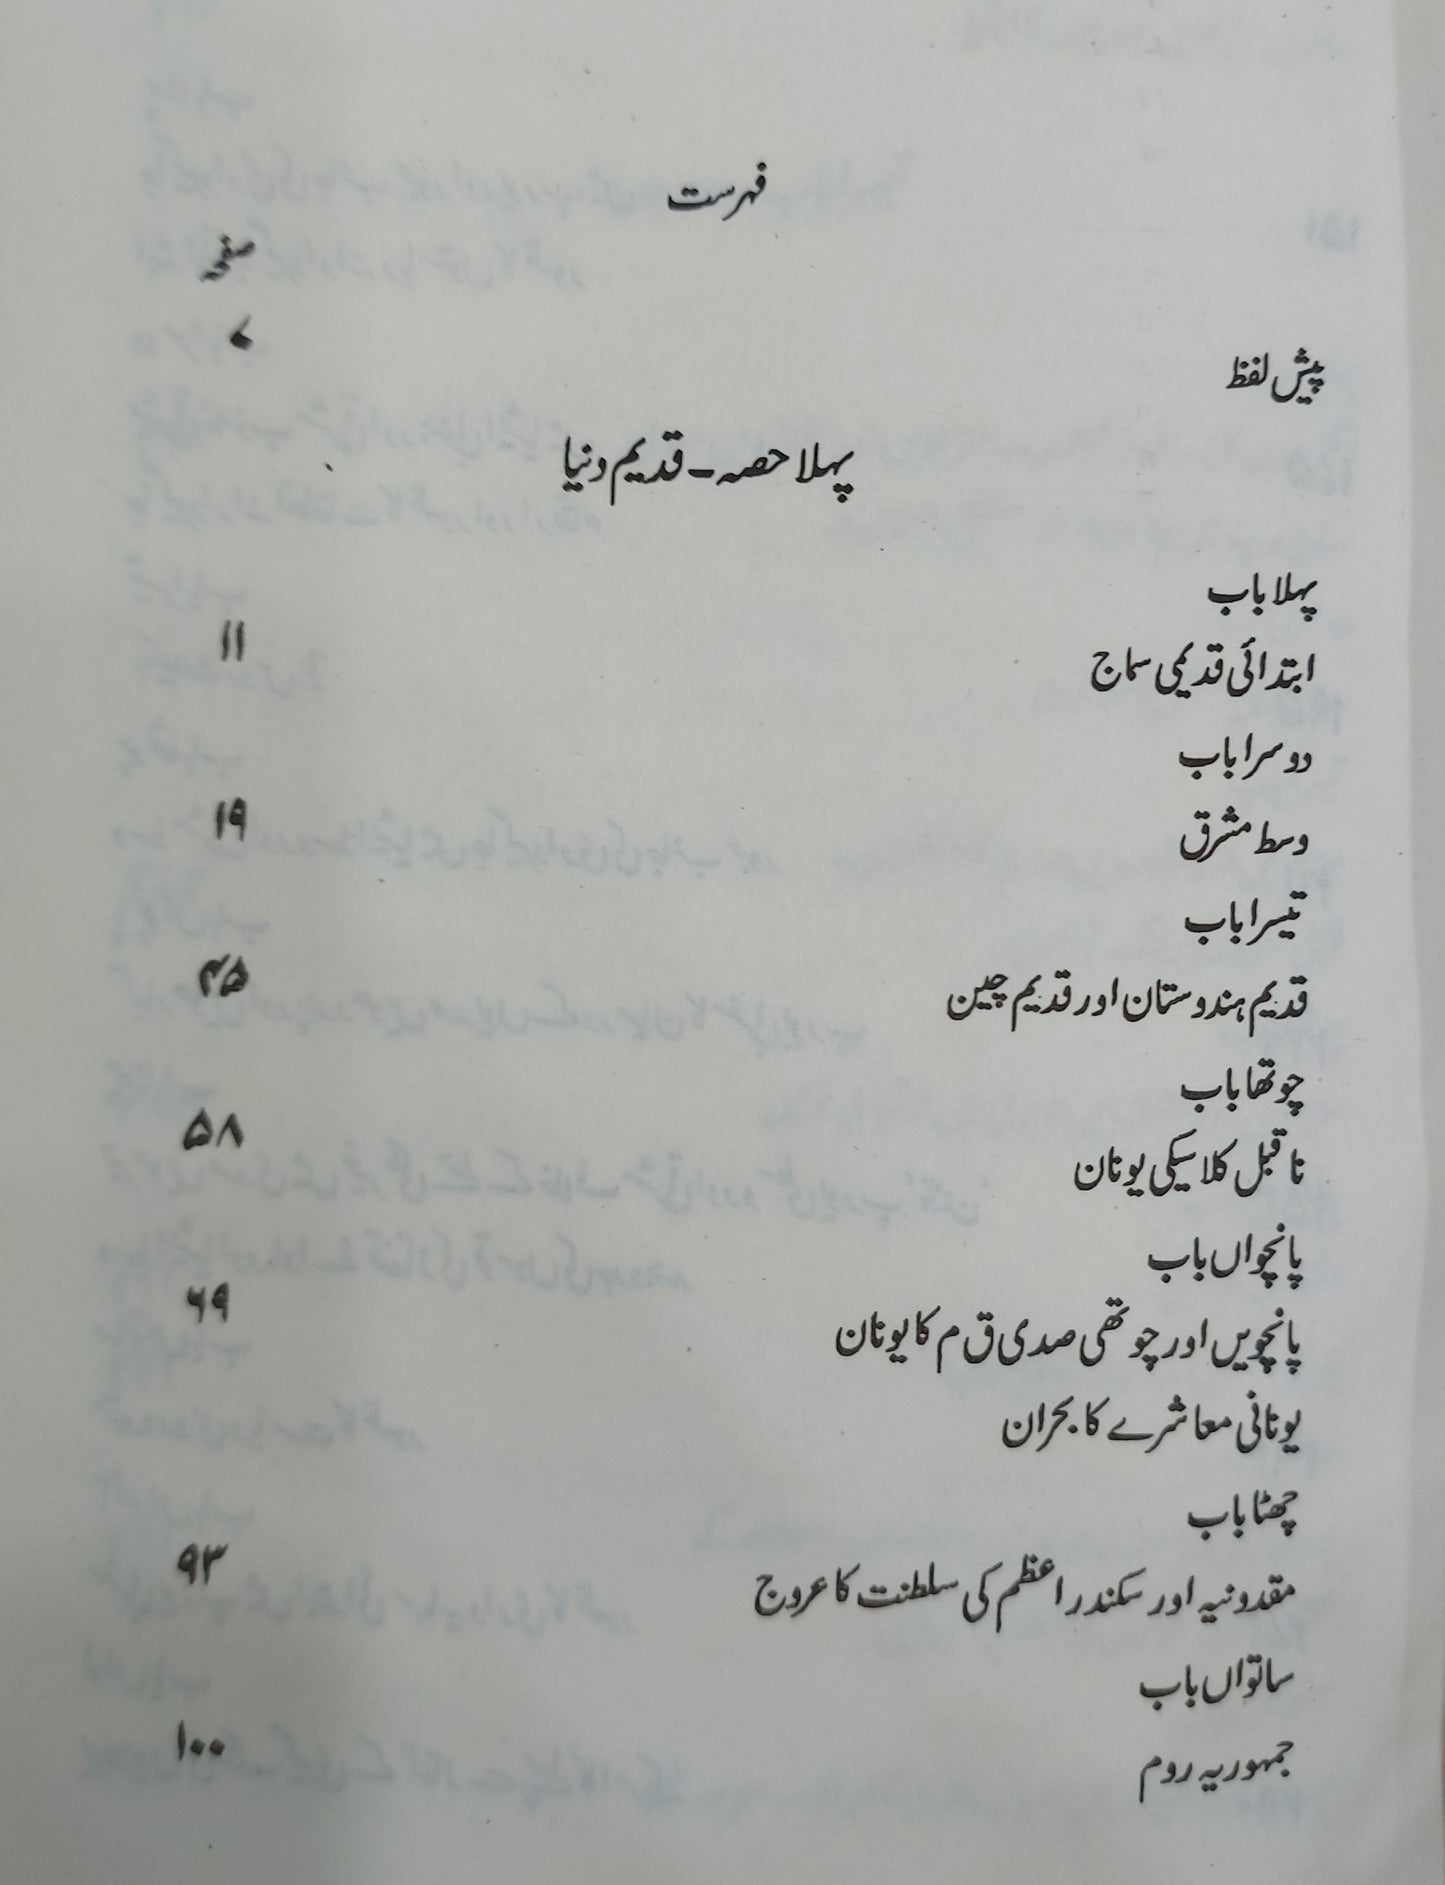 فہرست
صفحہ
پیش لفظ ۷
پہلا حصہ - قدیم دنیا
پہلا باب
ابتدائی قدیمی سماج ۱۱
دوسرا باب
وسط مشرق ۱۹
تیسرا باب
قدیم ہندوستان اور قدیم چین ۴۵
چوتھا باب
ما قبل کلاسیکی یونان ۵۸
پانچواں باب
پانچویں اور چوتھی صدی ق م کا یونان ۶۹
یونانی معاشرے کا بحران
چھٹا باب
مقدونیہ اور سکندر اعظم کی سلطنت کا عروج ۹۳
ساتواں باب
جمہوریہ روم ۱۰۰